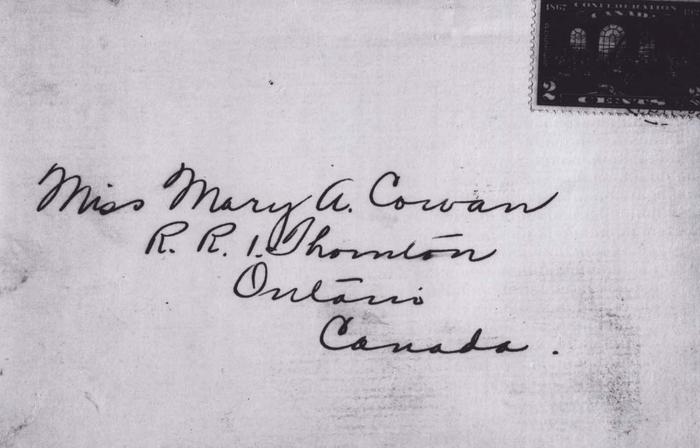 1867 CONFEDERATION
CANADA
2
CENTS
Miss Mary A. Cowan
R. R. 1. Thornton
Ontario
Canada.